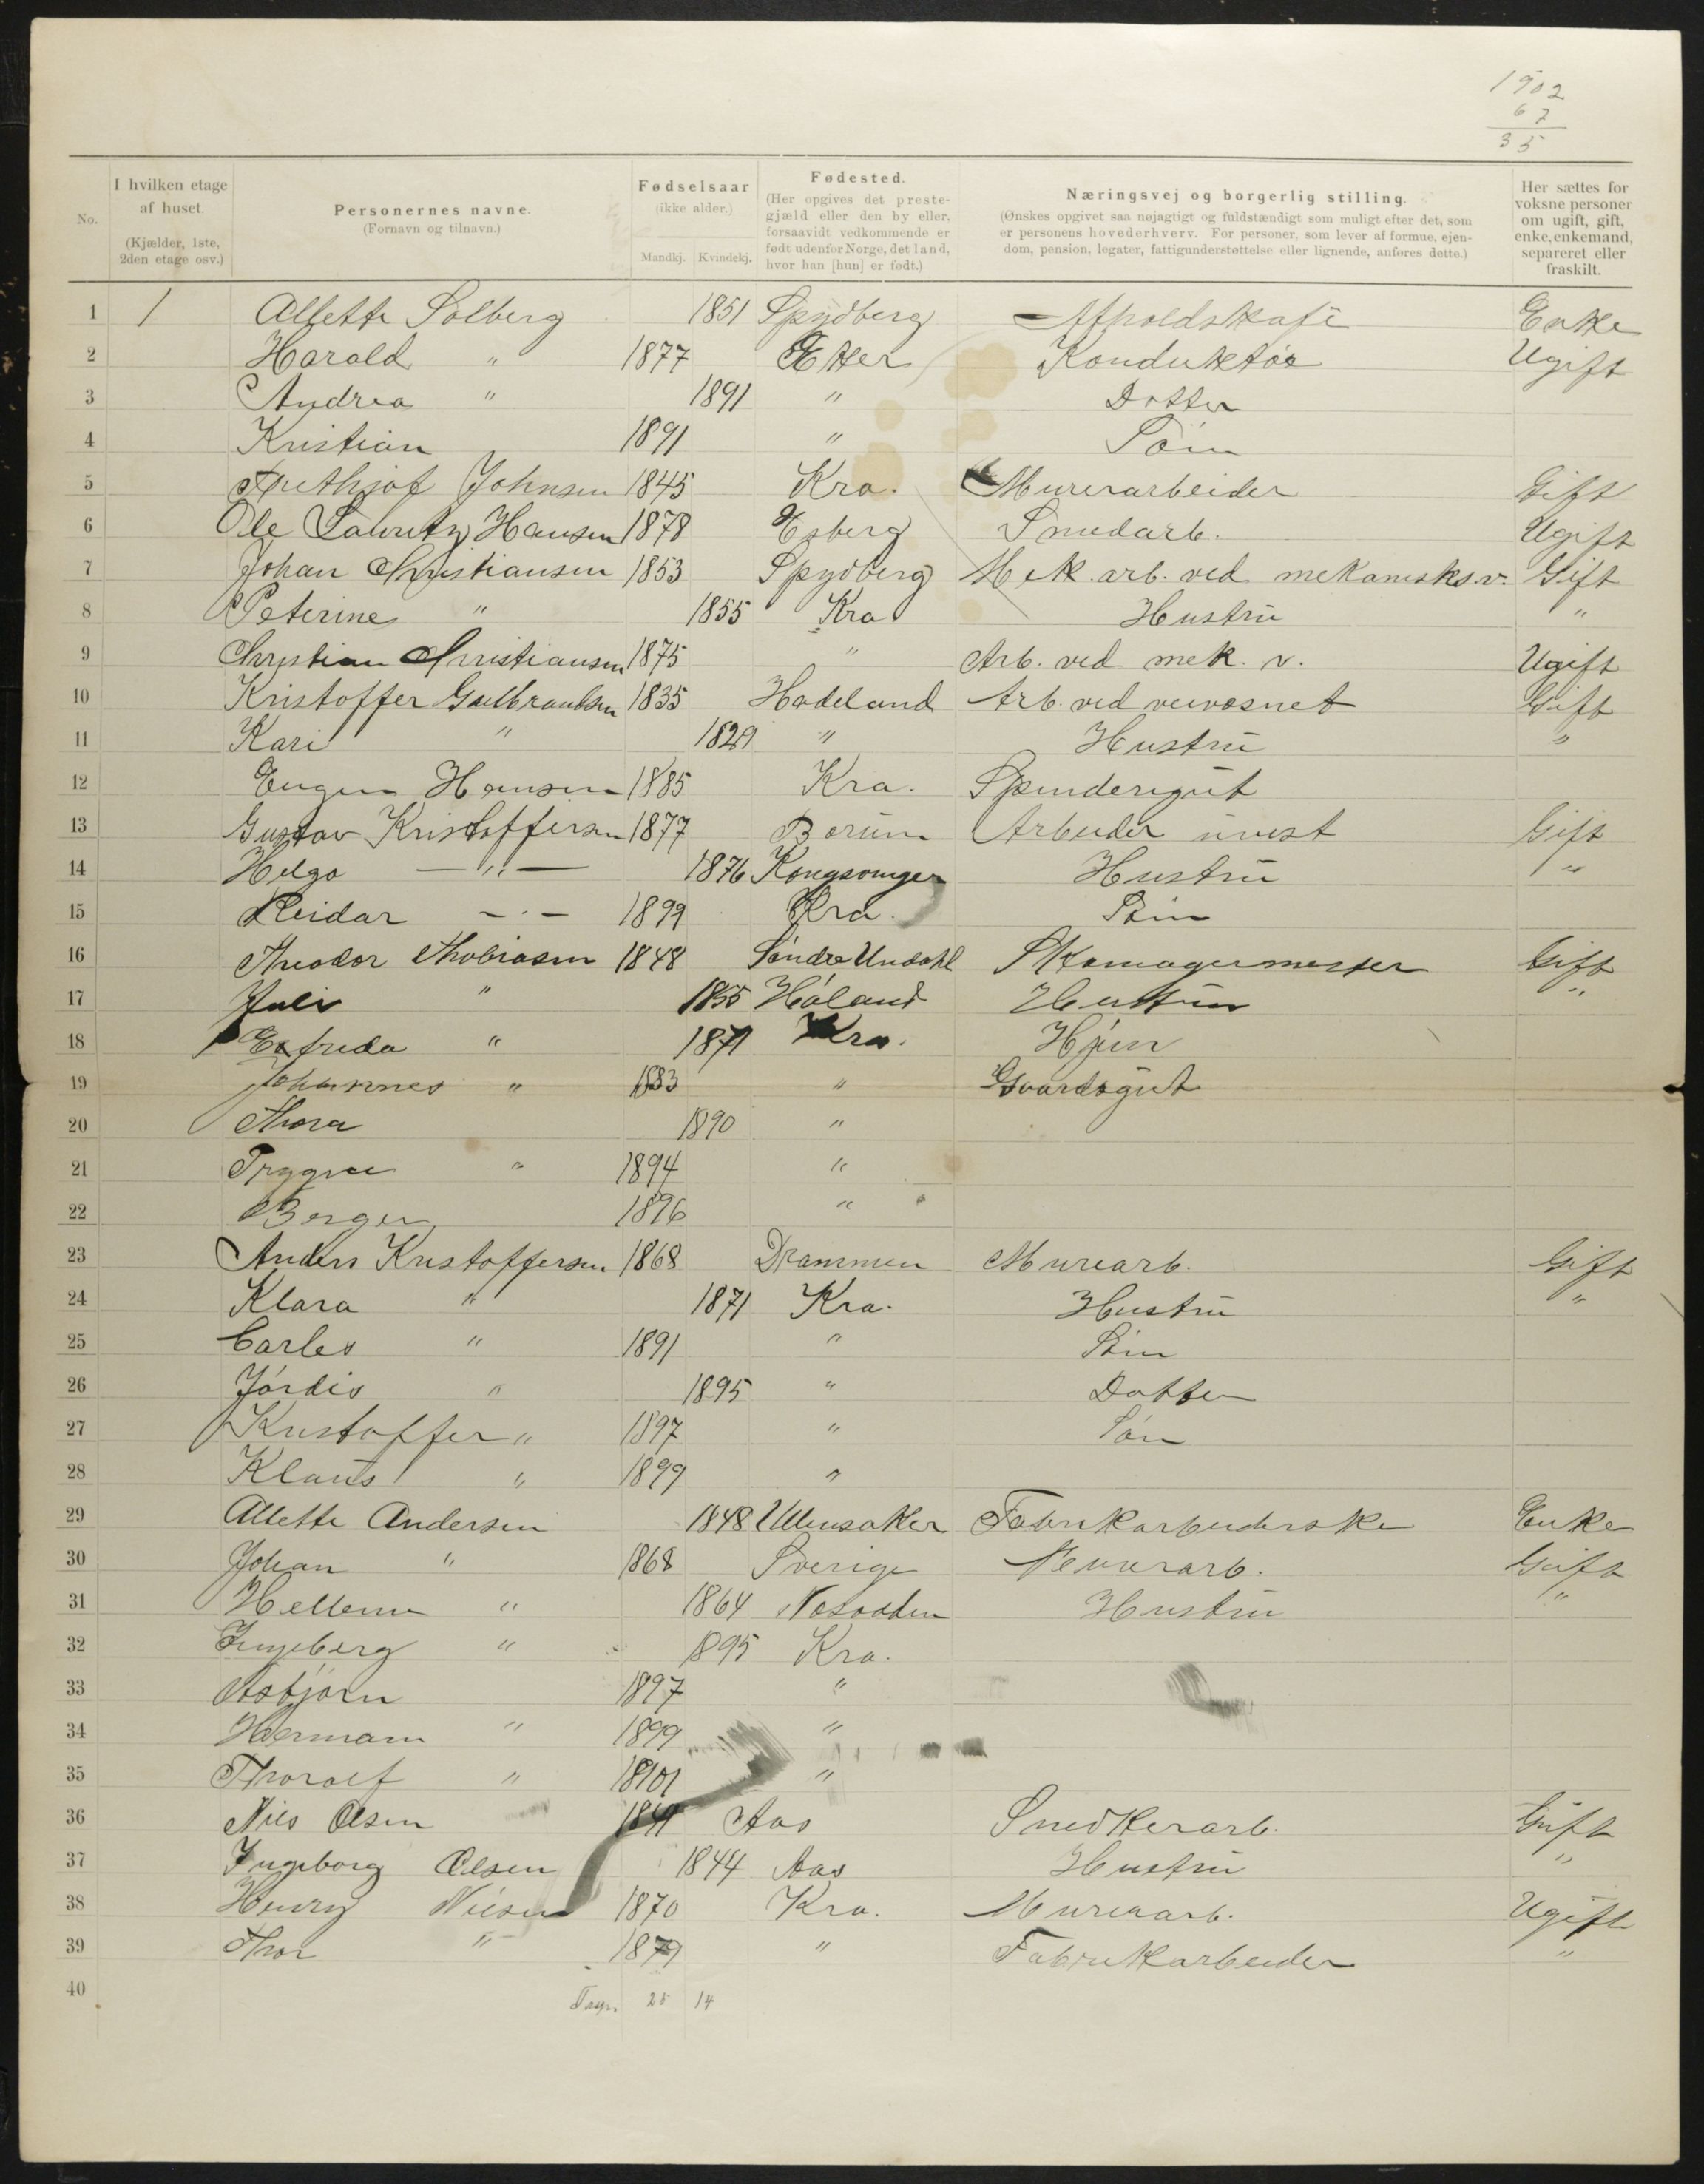 1902
67
35
No.
I hvilken etage af huset. (Kjælder, 1ste, 2den etage osv.)
Personernes navne. (Fornavn og tilnavn.)
Fødselsaar (ikke alder.) Mandkj. Kvindekj.
Fødested. (Her opgives det prestegjæld eller den by eller, forsaavidt vedkommende er født udenfor Norge, det land, hvor han [hun] er født.)
Næringsvej og borgerlig stilling. (Ønskes opgivet saa nøjagtigt og fuldstændigt som muligt efter det, som er personens hovederhverv. For personer, som lever af formue, ejendom, pension, legater, fattigunderstøttelse eller lignende, anføres dette.)
Her sættes for voksne personer om ugift, gift, enke, enkemand, separeret eller fraskilt.
1 1 Allette Solberg 1851 Spydberg Afholdskafe Enke
2 Harald " 1877 Konduktør Ugift
3 Andrea " 1891 " Datter
4 Kristian 1891 " Søn
5 Johnsen 1845 Kra. Murerarbeider Gift
6 Ole Lauritz Hansen 1878 Smedarb. Ugift
7 Johan Christiansen 1853 Spydberg Mek. arb. ved mekanisks.v. Gift
8 Peterine " 1855 Kra Hustru "
9 Christian Christiansen 1875 " Arb. ved mek. v. Ugift
10 Kristoffer Gulbrandsen 1835 Hadeland Arb. ved veivæsnet Gift
11 Kari " " Hustru "
12 Eugen Hansen 1885 Kra. Spinderigut
13 Gustav Kristoffersen 1877 Bærum Arbeider Gift
14 Helga — " — 1876 Kongsvinger Hustru "
15 Reidar — " — 1899 Kra. Søn
16 Theodor Thobiasen 1848 Søndre Undahl Skomagermester Gift
17 Juli " 1855 Høland Hustru "
18 " Kra. Hjem
19 Johannes " 1883 " Gaardsgut
20 Thora 1890 "
21 Trygve " 1894 "
22 Berger 1896 "
23 Anders Kristoffersen 1868 Drammen Murearb. Gift
24 Klara " 1871 Kra. Hustru "
25 Carles " 1891 " Søn
26 Jórdis " 1895 " Datter
27 Kristoffer " 1897 " Søn
28 Klaus " 1899 "
29 Allette Andersen 1848 Ullensaker Fabrikarbeiderske Enke
30 Johan " 1868 Sverige Murerarb. Gift
31 Hellene " 1864 Nesodden Hustru "
32 Ingeborg " 1895 Kra.
33 Asbjørn 1897 "
34 Hermann " 1899 "
35 Thoralf " "
36 Nils Olsen Aas Snedkerarb. Gift
37 Ingeborg Olsen 1844 Aas Hustru "
38 Henry Nilsen 1870 Kra. Murerarb. Ugift
39 Thor " 1879 " Fabrikkarbeider "
40
25 14